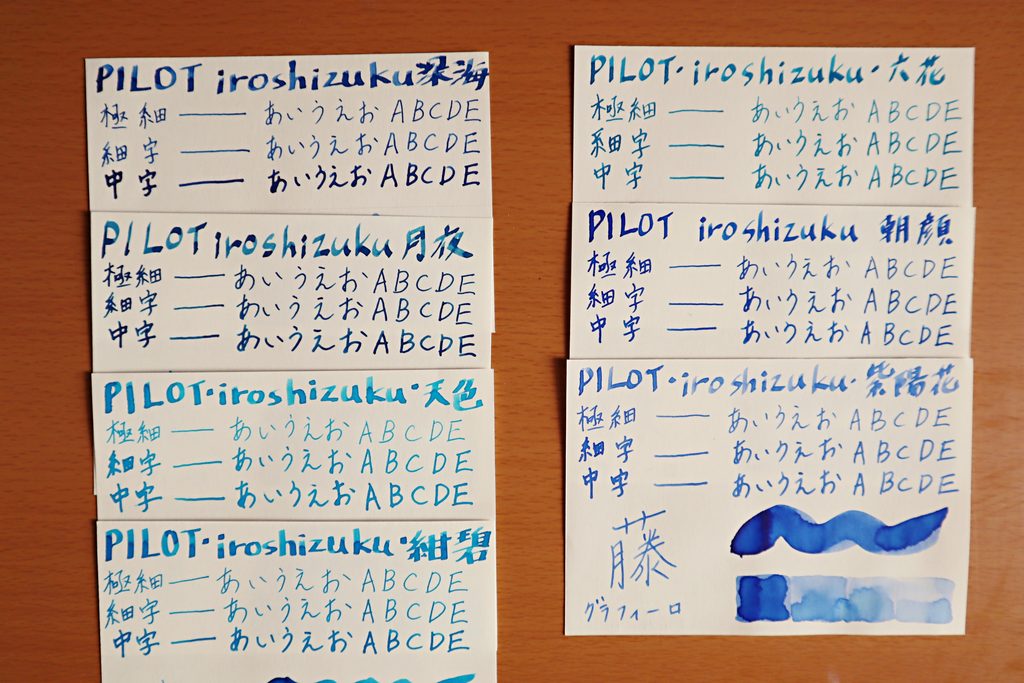 PILOT iroshizuku深海
極細 ― あいうえお ABCDE
細字 ― あいうえお ABCDE
中字 ― あいうえお ABCDE
PILOT iroshizuku 月夜
極細 ― あいうえお ABCDE
細字 ― あいうえお ABCDE
中字 ― あいうえお ABCDE
PILOT・iroshizuku・天色
極細 ― あいうえお ABCDE
細字 ― あいうえお ABCDE
中字 ― あいうえお ABCDE
PILOT・iroshizuku・紺碧
極細 ― あいうえお ABCDE
細字 ― あいうえお ABCDE
中字 ― あいうえお ABCDE
PILOT・iroshizuku・六花
極細 ― あいうえお ABCDE
細字 ― あいうえお ABCDE
中字 ― あいうえお ABCDE
PILOT iroshizuku 朝顔
極細 ― あいうえお ABCDE
細字 ― あいうえお ABCDE
中字 ― あいうえお ABCDE
PILOT・iroshizuku・紫陽花
極細 ― あいうえお ABCDE
細字 ― あいうえお ABCDE
中字 ― あいうえお ABCDE
藤
グラフィーロ